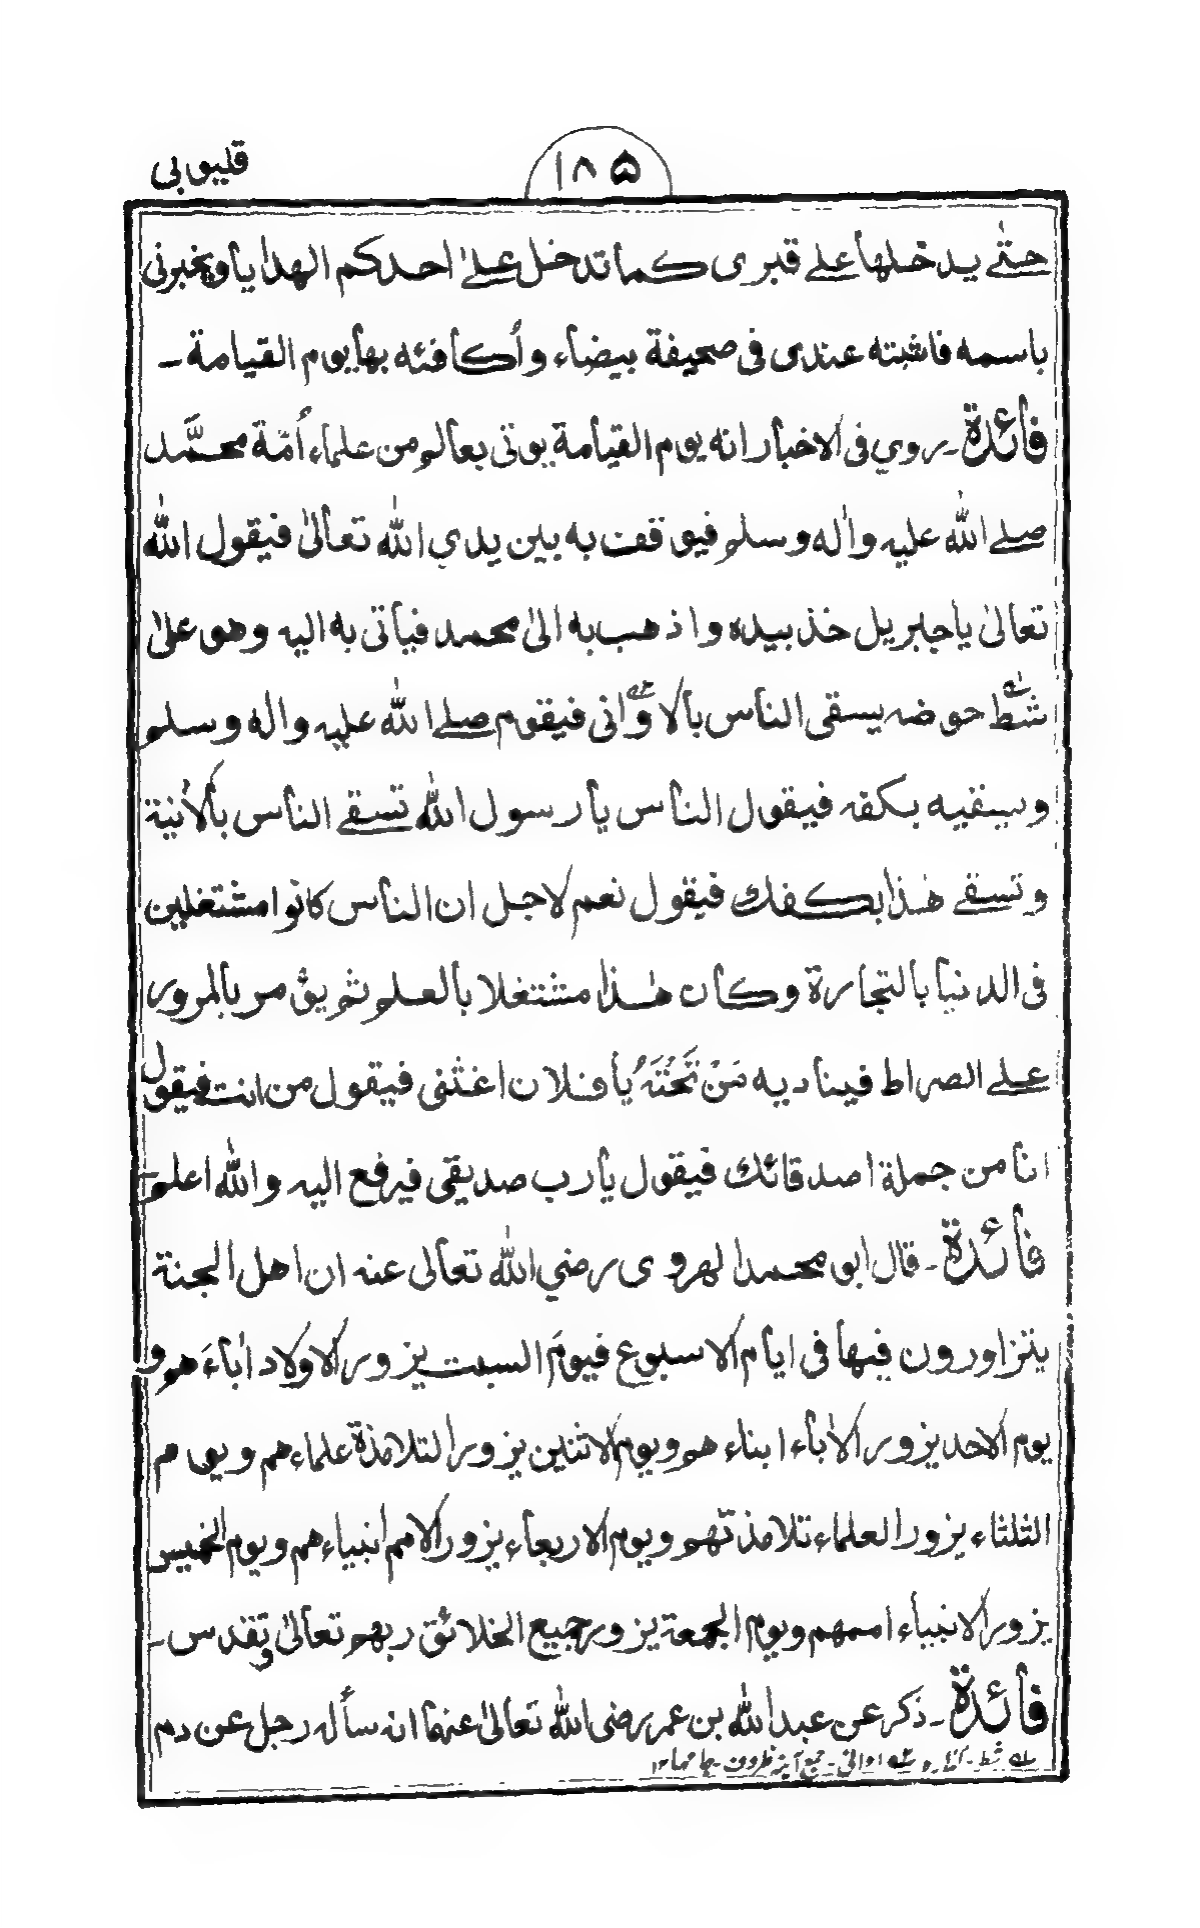 ۱۸۵
قليوبى
حتّٰے يدخلها علے قبرى كما تدخل علےٰ احدكم الهدايا ويخبرنى
باسمه فاثبته عندى فى صحيفة بيضاء وأكافئه بها يوم القيامة ـ
فائدة ـ روي فى الاخبار انه يوم القيامة يوتى بعالم من علماء أمّة محمّد
صلے الله عليه واٰله وسلم فيوقف به بين يدي الله تعالىٰ فيقول الله
تعالىٰ ياجبريل خذ بيده واذهب به الىٰ محمد فيأتى به اليه وهو علىٰ
شطّ حوضه يسقى الناس بالاوانى فيقوم صلے الله عليه واله وسلم
ويسقيه بكفه فيقول الناس يا رسول الله تسقے الناس بالاٰنية
وتسقے هٰذا بكفك فيقول نعم لاجل ان الناس كانوا مشتغلين
فى الدنيا بالتجارة وكان هٰذا مشتغلا بالعلم ثم يؤمر بالمرور
علے الصراط فيناديه مَنْ تَحْتَهُ يا فلان اغثنى فيقول من انت فيقول
انا من جملة اصدقائك فيقول يارب صديقى فيرفع اليه والله اعلم ـ
فائدة ـ قال ابو محمد الهروى رضي الله تعالى عنه ان اهل الجنة
يتزاورون فيها فى ايام الاسبوع فيومَ السبت يزور الاولاد اٰباءَهم و
يوم الاحد يزور الاٰباء ابناءهم ويوم الاثنين يزور التلامذة علماءهم ويوم
الثلثاء يزور العلماء تلامذتهم ويوم الاربعاء يزور الامم انبياءهم ويوم الخميس
يزور الانبياء اممهم ويوم الجمعة يزور جميع الخلائق ربهم تعالىٰ وتقدس ـ
فائدة ـ ذكر عن عبد الله بن عمر رضى الله تعالىٰ عنهما انه سأله رجل عن دم
له شط ـ كناره ٢ه اوانى ـ جمع آنية ظروف ـ ١٢